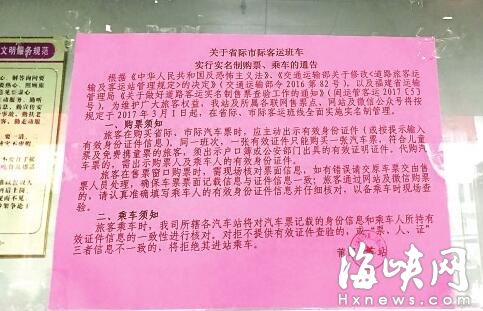 关于省际市际客运班车
实行实名制购票、乘车的通告
根据《中华人民共和国反恐怖主义法》、《交通运输部关于修改<道路旅客运
输及客运站管理规定>的决定》(交通运输部令2016第82号)以及福建省运输
管理局《关于做好道路客运实名制售票查验工作的通知》(闽运管客运2017〔5〕
号),为维护广大旅客权益,我站及所属各联网售票点、网站及微信公众号将按
规定于2017年3月1日起,在省际、市际客运班线全面实施实名制管理。
一、购票须知
旅客在购买省际、市际汽车票时,应主动出示有效身份证件(或按提示输入
有效身份证件信息),同一班次,一张有效证件只能购买一张汽车票,符合儿童
票及免费携童票的旅客,须出示户口簿或公安部门出具的有效证明证件。代购汽
车票的,需出示购票人及乘车人的有效身份证件。
旅客在售票窗口购票时,需现场核对票面信息,如有错误请交原车票交由售
票人员处理,确保车车票票面记载信息与证件信息一致;旅客通过网站及微信购票
的,请认真准确填写乘车人的有效身份证件信息并仔细核对,以备乘车时现场查
验。
二、乘车须知
旅客乘车时,我司所辖各汽车站将对汽车票记载的身份信息和乘车人所持有
效证件信息的一致性进行核对。对拒不提供有效证件查验的,或“票、人、证”
三者信息不一致的,将拒绝其进站乘车。
站
文明服务规范
海峡网
Hxnews.com